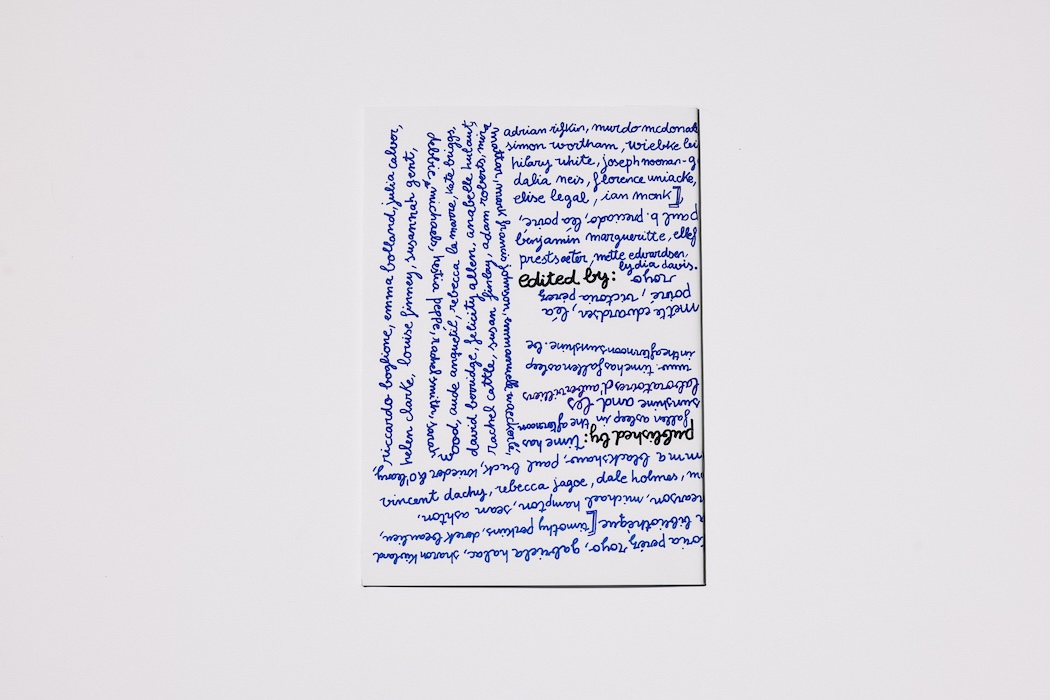 adrian rifkin, murdo mcdonal
simon wortham, wiebke lei
hilary white, joseph noonan-g
dalia neis, florence uniacke,
elise legal, ian monk
paul b. preciado, léa poiré,
benjamin margueritte, ellef
prestsæter, mette edvardsen,
lydia davis.
edited by:
mette edvardsen, léa
poiré, victoria pérez
royo
published by: time has
fallen asleep in the afternoon
sunshine and les
laboratoires d'aubervilliers
www.timehasfallenasleep
intheafternoonsunshine.be
riccardo boglione, emma bolland, julia calver,
helen clarke, louise finney, susannah gent,
debbie michaels, hestia peppe, rachel smith, sarah
wood, aude anquetil, rebecca la marre, kate briggs,
david berridge, felicity allen, anabelle hulaut,
rachel cattle, susan finlay, adam roberts, mira
mattar, mark francis johnson, emmanuelle waeckerlé,
toria pérez royo, gabriela halac, sharon kivland
a bibliothèque [timothy perkins, derek beaulieu,
michael hampton, sean ashton,
vincent dachy, rebecca jagoe, dale holmes,
mma blackshaw, paul buck, kreider & o'leary,